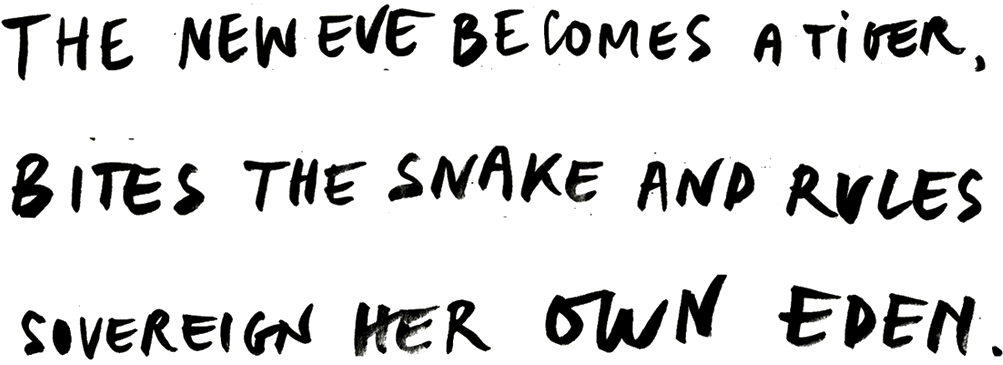 THE NEW EVE BECOMES A TiGER,
BITES THE SNAKE AND RULES
SOVEREIGN HER OWN EDEN.